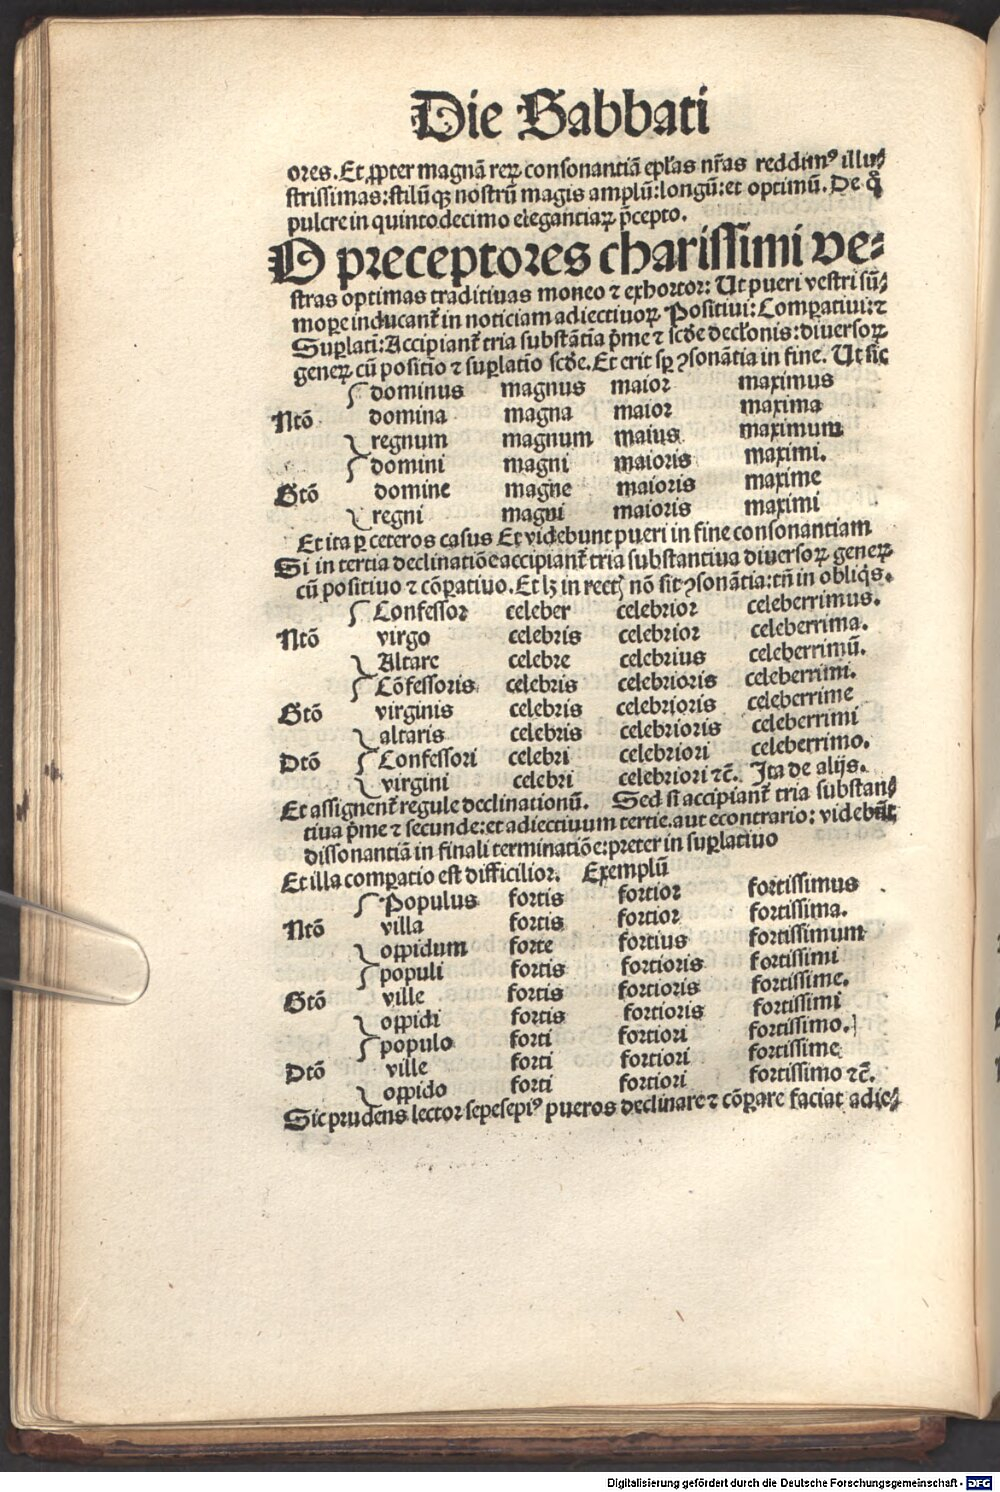 Die Sabbati
ores. Et ꝓpter magnā reꝝ consonantiā ep̄las nr̄as reddimꝰ illu⸗
strissimas: stilūqꝫ nostrū magis amplū: longū: et optimū. De q̄
pulcre in quintodecimo elegantiaꝝ p̄cepto.
O preceptores charissimi ve⸗
stras optimas traditiuas moneo ⁊ exhortor: Ut pueri vestri sū⸗
mopere inducant̄ in noticiam adiectiuoꝝ Positiui: Comꝑatiui: ⁊
Suꝑlati: Accipiant̄ tria substātia p̄me ⁊ scd̄e decl̄onis: diuersoꝝ
generꝝ cū positio ⁊ suꝑlatio scd̄e. Et erit sꝑ ꝯsonātia in fine. Ut sic
dominus magnus maior maximus
Ntō domina magna maior maxima
regnum magnum maius maximum
domini magni maioris maximi.
Gtō domine magne maioris maxime
regni magni maioris maximi
Et ita ꝑ ceteros casus Et videbunt pueri in fine consonantiam
Si in tertia declinatiōe accipiant̄ tria substantiua diuersoꝝ generꝝ
cū positiuo ⁊ cōꝑatiuo. Et lꝫ in rect꜀ nō sit ꝯsonātia: tn̄ in obliq̄s.
Confessor celeber celebrior celeberrimus.
Ntō virgo celebris celebrior celeberrima.
Altare celebre celebrius celeberrimū.
Cōfessoris celebris celebrioris celeberrimi.
Gtō virginis celebris celebrioris celeberrime
altaris celebris celebrioris celeberrimi
Dtō Confessori celebri celebriori celeberrimo.
virgini celebri celebriori ⁊c̄. Ita de alijs.
Et assignent̄ regule declinationū. Sed si accipiant̄ tria substan⸗
tiua p̄me ⁊ secunde: et adiectiuum tertie. aut econtrario: videbūt
dissonantiā in finali terminatiōe: preter in suꝑlatiuo
Et illa comꝑatio est difficilior. Exemplū
Populus fortis fortior fortissimus
Ntō villa fortis fortior fortissima.
oppidum forte fortius fortissimum
populi fortis fortioris fortissimi
Gtō ville fortis fortioris fortissime.
oppidi fortis fortioris fortissimi
populo forti fortiori fortissimo.
Dtō ville forti fortiori fortissime
oppido forti fortiori fortissimo ⁊c̄.
Sic prudens lector sepesepiꝰ pueros declinare ⁊ cōꝑare faciat adie⸗
Digitalisierung gefördert durch die Deutsche Forschungsgemeinschaft - DFG